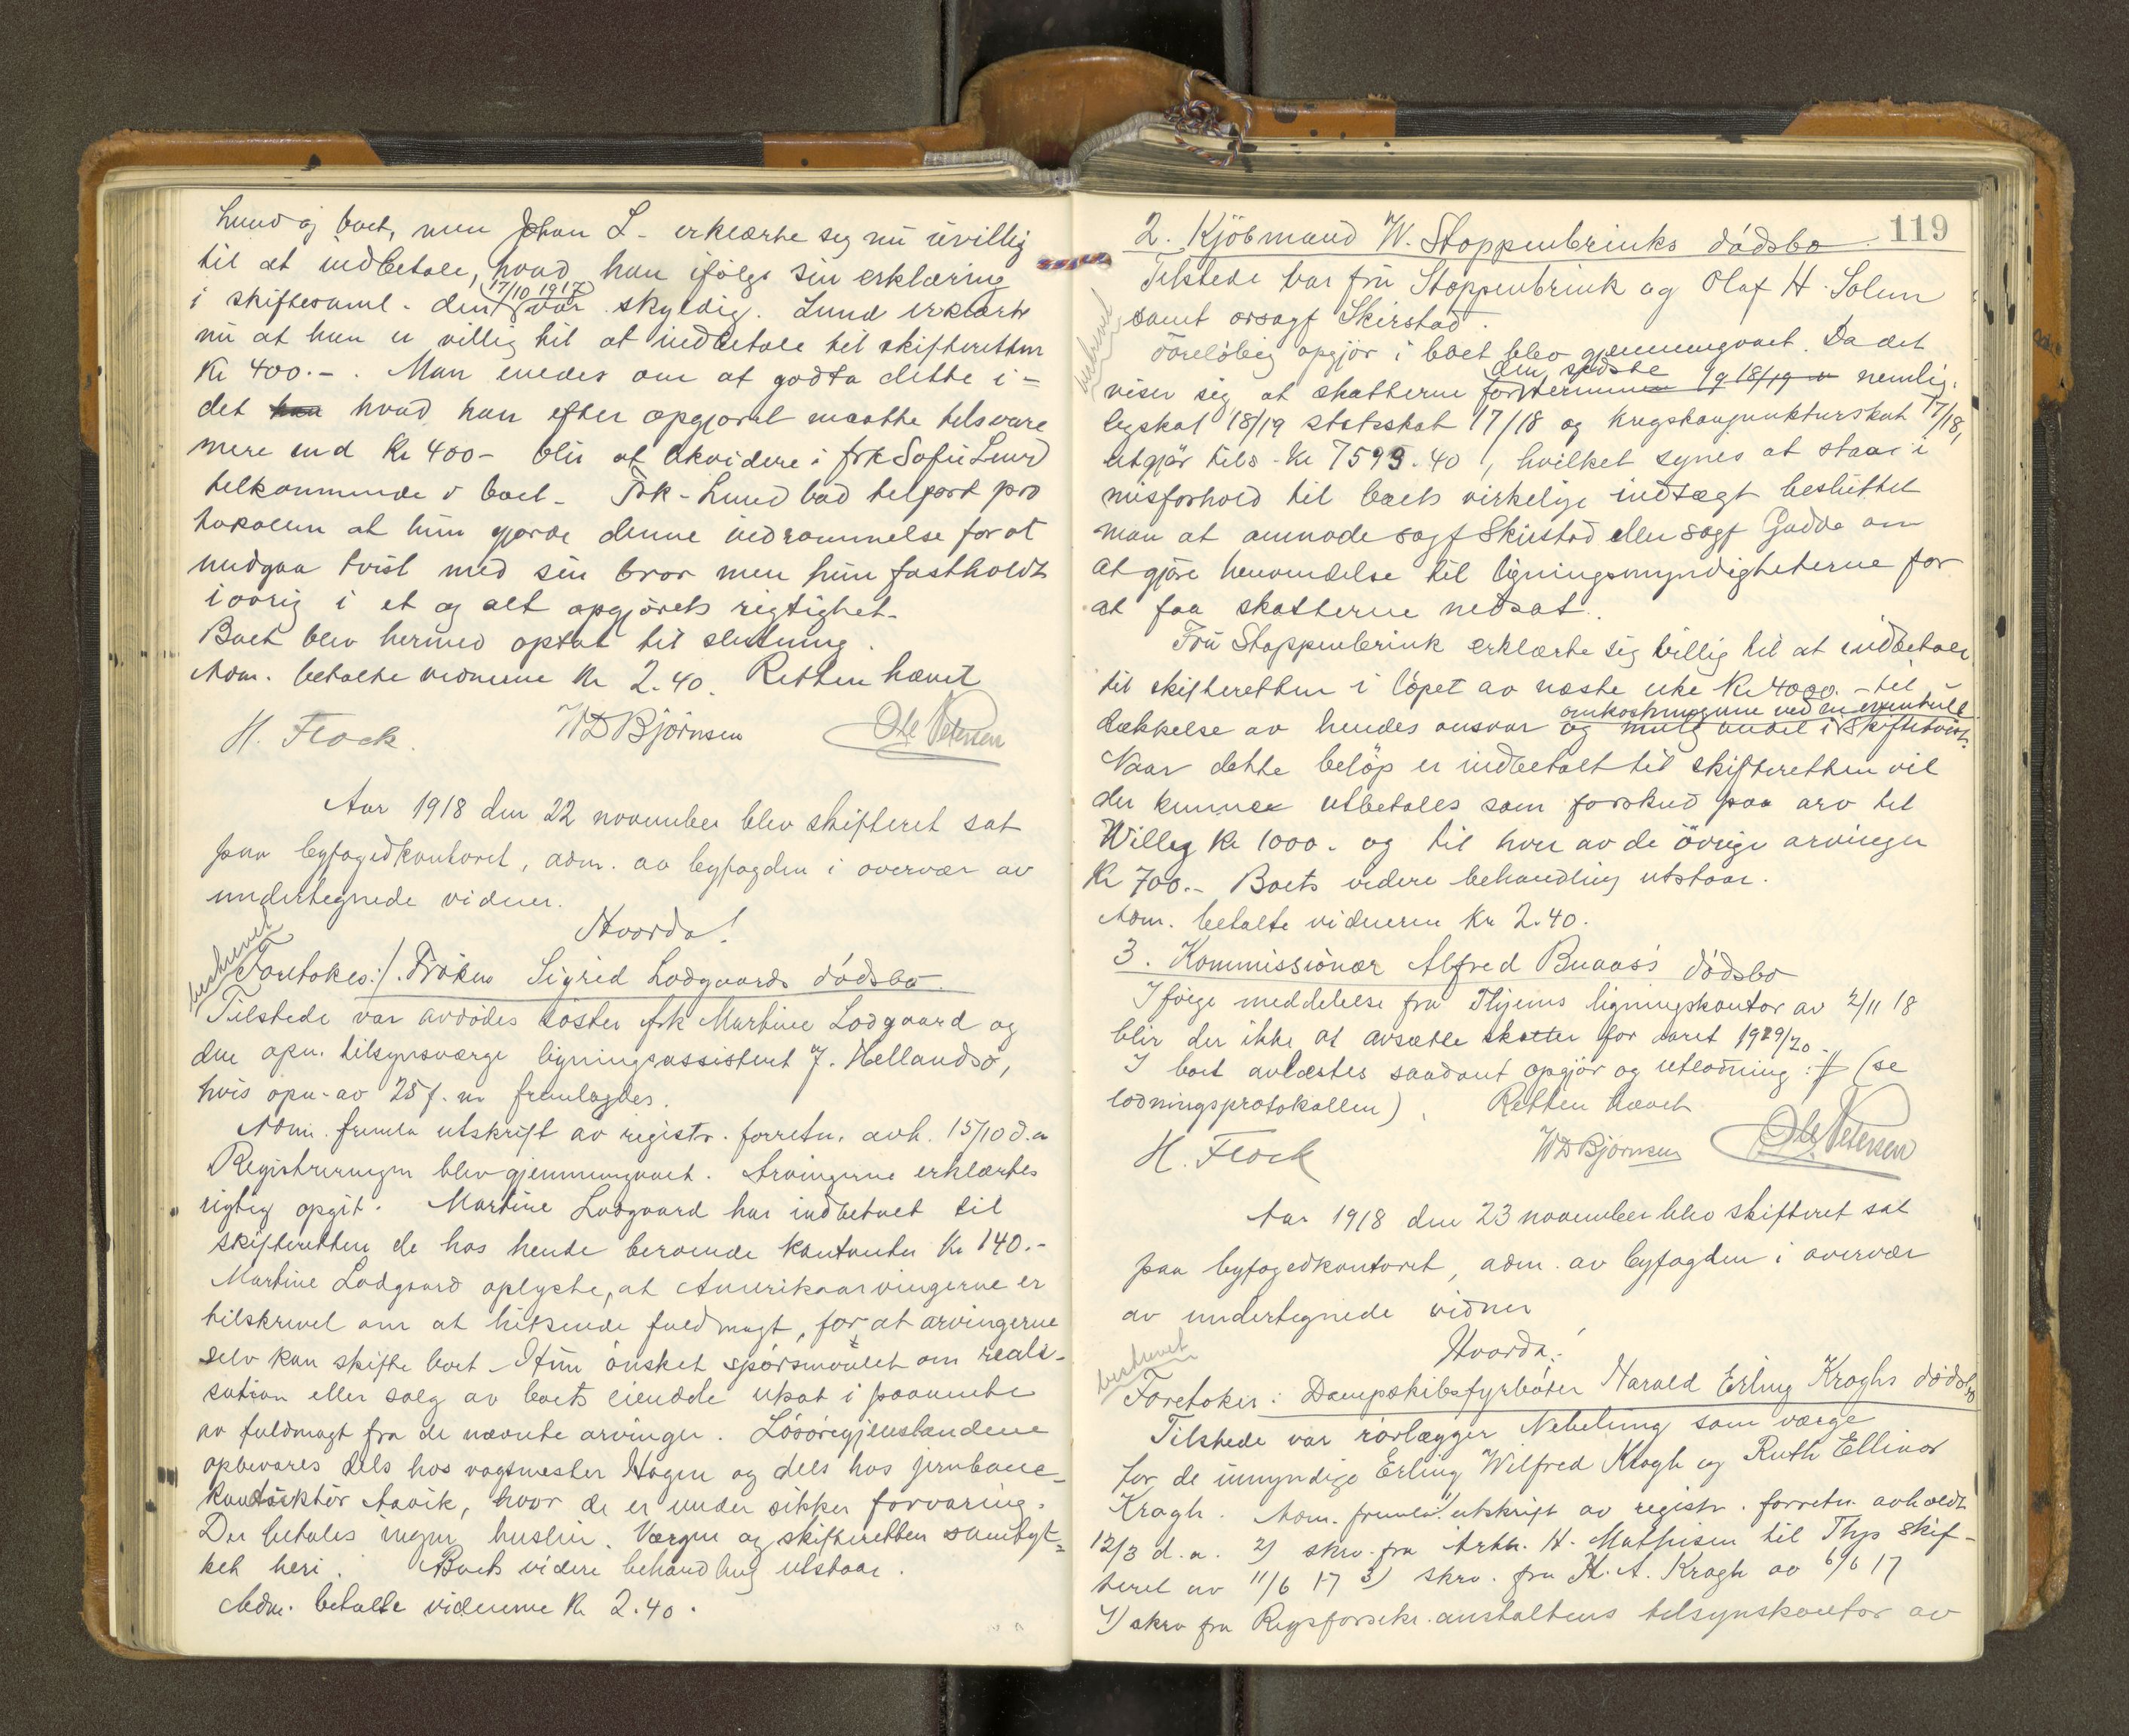 Lund og boet, men Johan L - erklærte seg nu uvillig
til at indbetale, hvad han ifølge sin erklæring
i skiftesaml. den 17/10 1917 var skyldig. Lund erklærte
nu at han er villig til at indbetale til skifteretten
Kr 400.-. Man enedes om at godta dette i-
det han hvad han efter opgjøret maatte tilsvare
mere end Kr 400- blir at likvidere i frk Sofie Lund
tilkommende i boet - Frk - Lund bad tilført pro
tokollen at hun gjorde denne indrømmelse for at
undgaa tvist med sin bror men hun fastholdt
iøvrig i et og alt opgjørets rigtighet -
Boet blev hermed optat til slutning.
Adm. betalte vidnerne Kr 2.40. Retten hævet
H. Flock. WDBjørnsen Ole Petersen
Aar 1918 den 22 november blev skifteret sat
paa byfogedkontoret, adm. av byfogden i overvær av
undertegnede vidner.
Hvorda!
beskrevet
Foretokes: 1. Frøken Sigrid Lodgaards dødsbo.
Tilstede var avdødes søster frk Martine Lodgaard og
den opn. tilsynsværge ligningsassistent J. Hellandsø,
hvis opn. av 25 f. m. fremlagdes.
Adm. fremla utskrift av registr. forretn. avh. 15/10 d.a
Registreringen blev gjennemgaaet. Arvingerne erklærtes
rigtig opgit. Martine Lodgaard har indbetalt til
skifteretten de hos hende beroende kontanter Kr 140.-
Martine Lodgaard oplyste, at Amerikaarvingerne er
tilskrevet om at hitsende fuldmagt, for at arvingerne
selv kan skifte boet - Hun ønsket spørsmaalet om reali-
sation eller salg av boets eiendele utsat i paavente
av fuldmagt fra de nævnte arvinger. Løsøregjenstandene
opbevares dels hos vognmester Hagen og dels hos jernbane-
konduktør Aavik, hvor de er under sikker forvaring.
Der betales ingen husleie. Værgen og skifteretten samtyk-
ket heri. Boets videre behandling utstaar.
Adm. betalte vidnerne Kr 2.40.
119
2. Kjöbmand W. Stoppenbrinks dödsbo.
beskrevet
Tilstede var fru Stoppenbrink og Olaf H. Solem
samt orsagf Skirstad.
Foreløbig opgjør i boet blev gjennemgaaet. Da det
viser sig at skatterne for den sidste termin 1918/19 nemlig.
byskat 18/19 statsskat 17/18 og krigskonjunkturskat 17/18,
utgjør tils - Kr 7595.40, hvilket synes at staa i
misforhold til boets virkelige indtægt besluttet
man at anmode sagf Skirstad eller sagf Gadde om
at gjøre henvendelse til ligningsmyndigheterne for
at faa skatterne nedsat.
Fru Stoppenbrink erklærte sig villig til at indbetale
til skifteretten i löpet av næste uke Kr 4000.- til
dækkelse av hendes ansvar og mulig andel i omkostningerne ved en eventuell skiftetvist.
Naar dette beløp er indbetalt til skifteretten vil
der kunne utbetales som forskud paa arv til
Willy Kr 1000.- og til hver av de øvrige arvinger
Kr 700.- Boets videre behandling utstaar.
Adm. betalte vidnerne Kr 2.40.
3. Kommissionær Alfred Buaas's dødsbo
Ifølge meddelelse fra Thjems ligningskontor av 2/11 18
blir der ikke at avsætte skatter for aaret 1919/20.
I boet avlæstes saadant opgjør og utlodning: # (se
lodningsprotokollen). Retten hævet
H. Flock WDBjørnsen Ole Petersen
Aar 1918 den 23 november blev skifteret sat
paa byfogedkontoret, adm. av byfogden i overvær
av undertegnede vidner
Hvorda:
beskrevet
Foretokes: Dampskibsfyrbøter Harald Erling Kroghs dødsbo
Tilstede var rørlægger Nebelung som værge
for de umyndige Erling Wilfred Krogh og Ruth Ellinor
Krogh. Adm. fremla: 1) utskrift av registr. forretn. avholdt
12/3 d.a. 2) skrv. fra Arkt. H. Mathisen til Thjs skif-
teret av 11/6 17 3) skrv. fra H. A. Krogh av 6/6 17
4) skrv fra Rigsforsikr. anstaltens tilsynskontor av